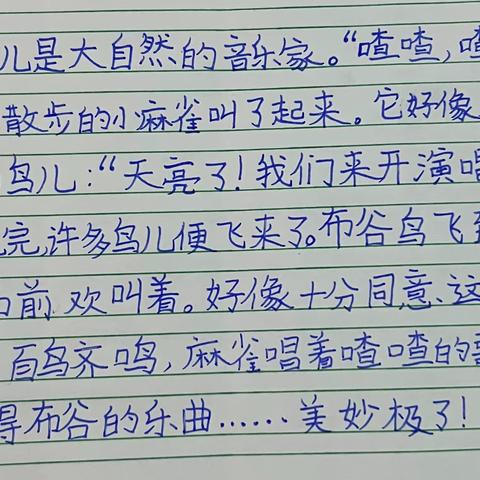 儿是大自然的音乐家。“喳喳,喳
散步的小麻雀叫了起来。它好像
鸟儿:“天亮了!我们来开演唱
完许多鸟儿便飞来了。布谷鸟飞到
前欢叫着。好像十分同意、这
百鸟齐鸣,麻雀唱着喳喳的歌
得布谷的乐曲……美妙极了!